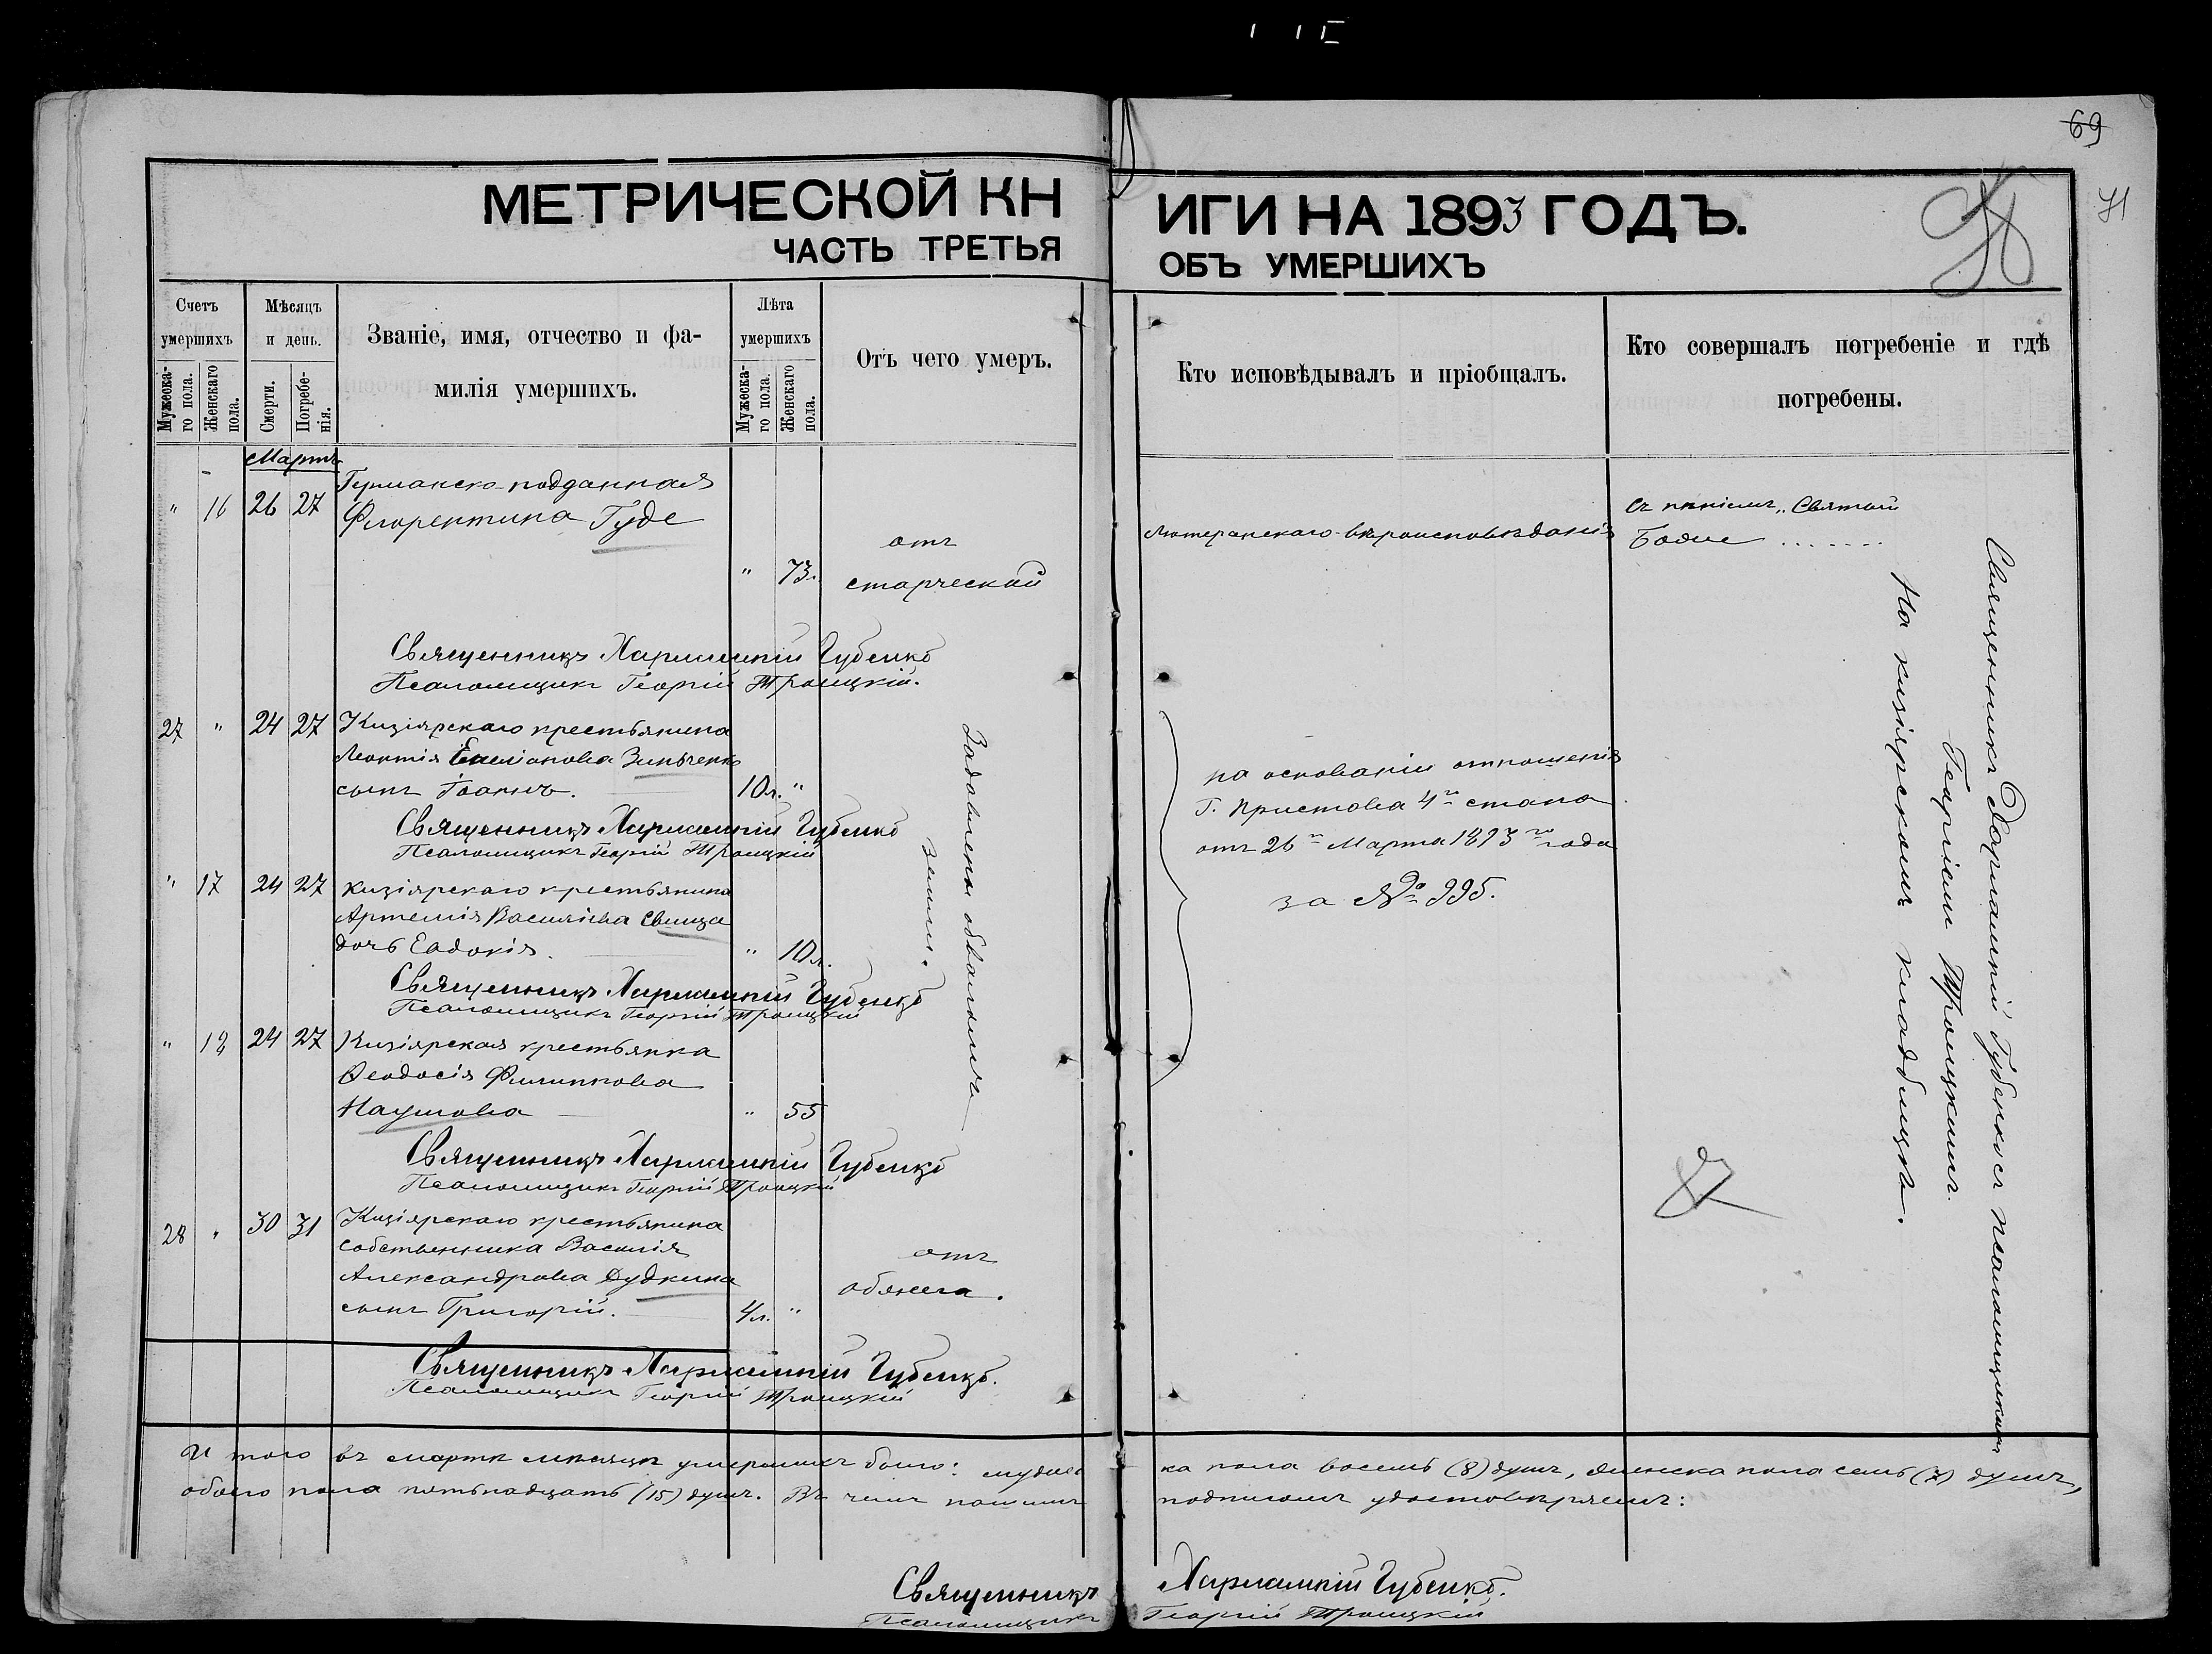 69
71
МЕТРИЧЕСКОЙ КНИГИ НА 1893 ГОДЪ.
ЧАСТЬ ТРЕТЬЯ ОБЪ УМЕРШИХЪ
Счетъ умершихъ
Мужеска-го пола.
Женскаго пола.
Мѣсяцъ и день.
Смерти.
Погребе-нія.
Званіе, имя, отчество и фа-
милія умершихъ.
Лѣта умершихъ
Мужеска-го пола.
Женскаго пола.
Отъ чего умеръ.
Кто исповѣдывалъ и пріобщалъ.
Кто совершалъ погребеніе и гдѣ
погребены.
Мартъ
" 16 26 27 Германско-подданная
Флорентина Гуде
" 73.
отъ
старческой
Лютеранскаго-вѣроисповѣданія
Съ пѣніемъ „Святый
Боже .......
Священникъ Харлампій Губенко
Псаломщикъ Георгій Троицкій.
27 " 24 27 Кизіярскаго крестьянина
Леонтія Емеліанова Зинченко
сынъ Іоаннъ. 10л. "
Священникъ Харлампій Губенко
Псаломщикъ Георгій Троицкій
" 17 24 27 Кизіярскаго крестьянина
Артемія Василіева
дочь Евдокія. " 10л.
Священникъ Харлампій Губенко
Псаломщикъ Георгій Троицкій
" 18 24 27 Кизіярская крестьянка
Ѳеодосія Филиппова
Наумова " 55
Священникъ Харлампій Губенко
Псаломщикъ Георгій Троицкій
Задавлены обваломъ
земли.
на основаніи отношенія
Г. Пристава 4го стана
отъ 26го Марта 1893го года
за № 995.
28 " 30 31 Кизіярскаго крестьянина
собственника Василія
Александрова Дудкина
сынъ Григорій. 4л. "
отъ
обжога.
Священникъ Харлампій Губенко.
Псаломщикъ Георгій Троицкій
Священникъ Харлампій Губенко съ псаломщикомъ
Георгіемъ Троицкимъ.
На кизіярскомъ кладбищѣ.
И того въ мартѣ мѣсяцѣ умершихъ было: мужеска пола восемь (8) душъ, женска пола семь (7) душъ,
обоего пола пятьнадцать (15) душъ. Въ чемъ нашимъ подписомъ удостовѣряемъ:
Священникъ Харлампій Губенко.
Псаломщикъ Георгій Троицкій